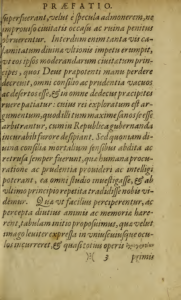 PRÆFATIO.
superfuerant, velut è specula admonerem, ne
improviso civitatis occasu ac ruina penitus
obruerentur. Interdum enim tanta vis ca-
lamitatum divina ultione impetu erumpit,
ve eos ipsos moderandarum civitatum prin-
cipes, quos Deus prapotenti manu perdere
decrevit, omni consilio ac prudentia vacuos
ac desertos esse, & in omne dedecus pracipites
ruere patiatur: cuius rei exploratum est ar-
gumentum, quod illi tum maxime sanos se esse
arbitrantur, cum in Republica gubernanda
incurabili furore desipiunt. Sed quoniam di-
vina consilia mortalium sensibus abdita ac
retrusa semper fuerunt, quæ humana procu-
ratione ac prudentia provideri ac intelligi
poterant, ea omni studio investigasse, & ab
ultimo principio repetita tradidisse nobis vi-
demur. Qua ut facilius perciperentur, ac
percepta diutius animis ac memoria hære-
rent, tabulam initio proposuimus, qua velut
imago leuiter expressa in uniuscuiusque ocu-
los incurreret, & quasi totius operis
3 primis